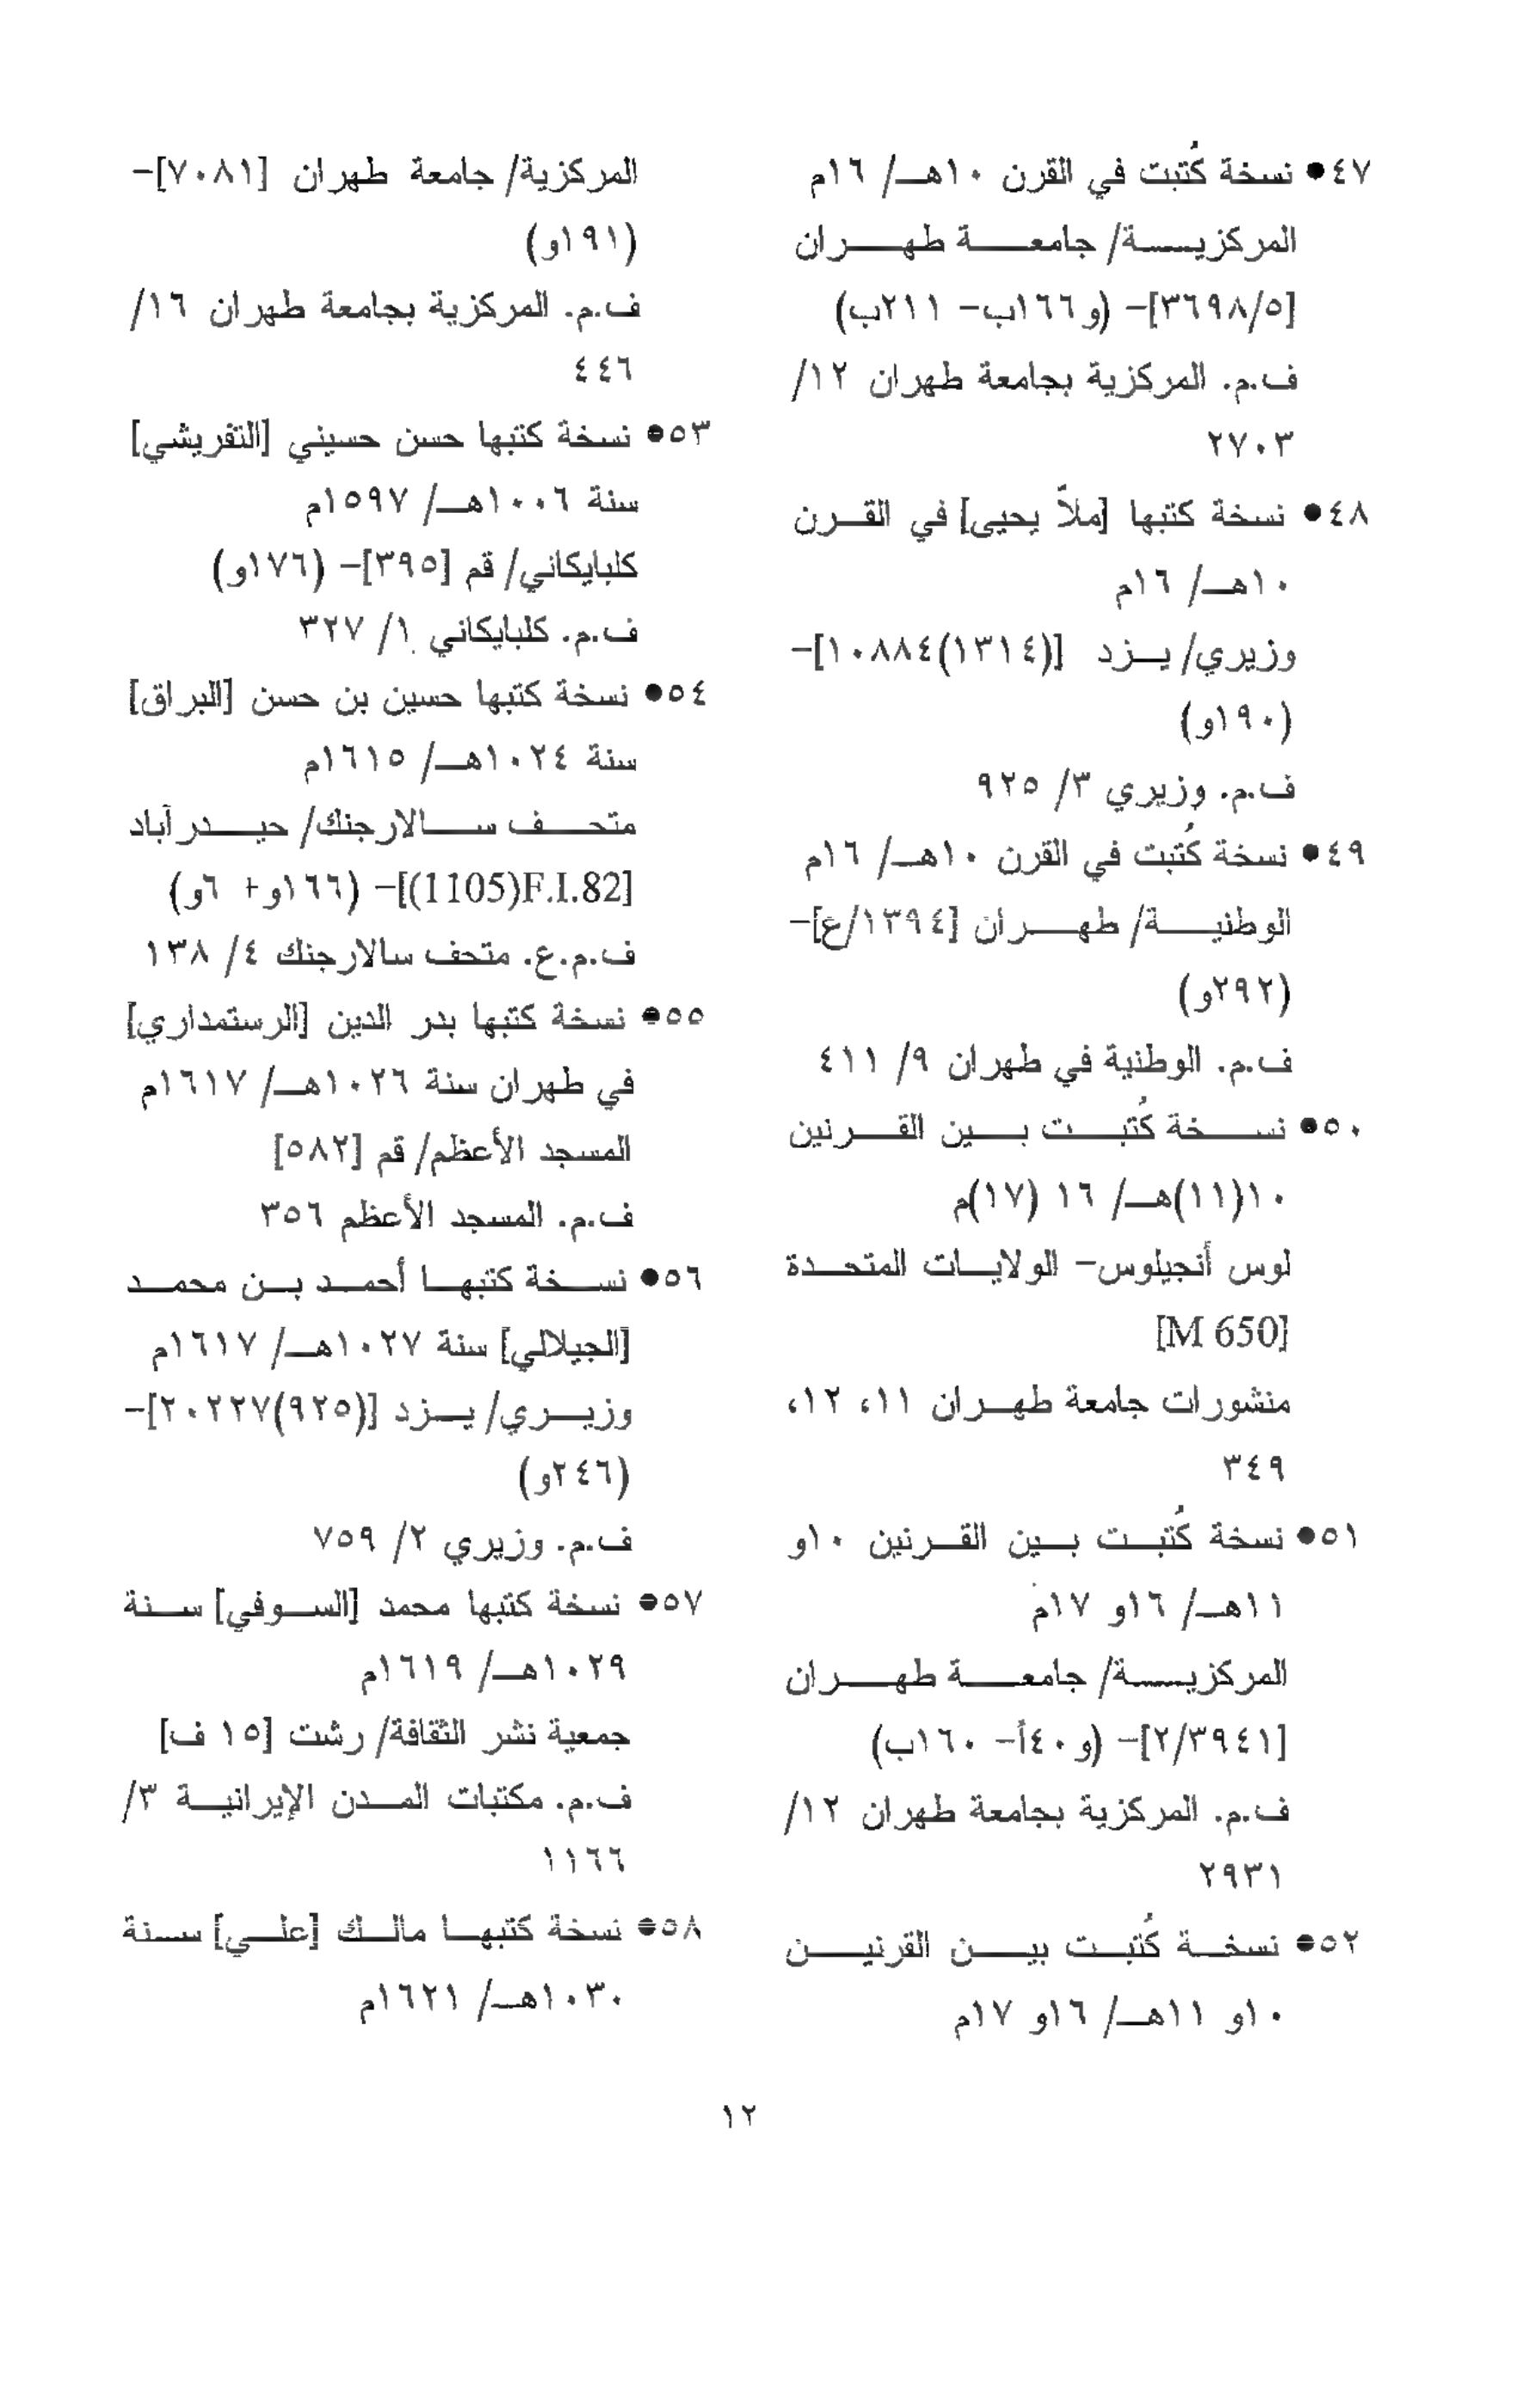 ٤٧● نسخة كُتبت في القرن ١٠هـ/ ١٦م
المركزيـة/ جامعـة طهـران
[٣٦٩٨/٥]- (و١٦٦ب- ٢١١ب)
ف.م. المركزية بجامعة طهران ١٢/
٢٧٠٣
٤٨● نسخة كتبها [ملاّ يحيى] في القـرن
١٠هـ/ ١٦م
وزيري/ يـزد [(١٣١٤)١٠٨٨٤]-
(١٩٠و)
ف.م. وزيري ٣/ ٩٢٥
٤٩● نسخة كُتبت في القرن ١٠هـ/ ١٦م
الوطنيـة/ طهـران [١٣٩٤/ع]-
(٢٩٢و)
ف.م. الوطنية في طهران ٩/ ٤١١
٥٠● نسـخة كُتبـت بـين القـرنين
١٠(١١)هـ/ ١٦ (١٧)م
لوس أنجيلوس- الولايـات المتحـدة
[M 650]
منشورات جامعة طهـران ١١، ١٢،
٣٤٩
٥١● نسخة كُتبـت بـين القـرنين ١٠و
١١هـ/ ١٦و ١٧م
المركزيـة/ جامعـة طهـران
[٢/٣٩٤١]- (و٤٠أ- ١٦٠ب)
ف.م. المركزية بجامعة طهران ١٢/
٢٩٣١
٥٢● نسخـة كُتبـت بيـن القرنيـن
١٠و ١١هـ/ ١٦و ١٧م
المركزية/ جامعة طهران [٧٠٨١]-
(١٩١و)
ف.م. المركزية بجامعة طهران ١٦/
٤٤٦
٥٣● نسخة كتبها حسن حسيني [التقريشي]
سنة ١٠٠٦هـ/ ١٥٩٧م
كلبايكاني/ قم [٣٩٥]- (١٧٦و)
ف.م. كلبايكاني ١/ ٣٢٧
٥٤● نسخة كتبها حسين بن حسن [البراق]
سنة ١٠٢٤هـ/ ١٦١٥م
متحـف سـالارجنك/ حيـدرآباد
[(1105)F.I.82]- (١٦٦و+ ٦و)
ف.م.ع. متحف سالارجنك ٤/ ١٣٨
٥٥● نسخة كتبها بدر الدين [الرستمداري]
في طهران سنة ١٠٢٦هـ/ ١٦١٧م
المسجد الأعظم/ قم [٥٨٢]
ف.م. المسجد الأعظم ٣٥٦
٥٦● نسـخة كتبهـا أحمـد بـن محمـد
[الجيلالي] سنة ١٠٢٧هـ/ ١٦١٧م
وزيـري/ يـزد [(٩٢٥)٢٠٢٢٧]-
(٢٤٦و)
ف.م. وزيري ٢/ ٧٥٩
٥٧● نسخة كتبها محمد [السـوفي] سـنة
١٠٢٩هـ/ ١٦١٩م
جمعية نشر الثقافة/ رشت [١٥ ف]
ف.م. مكتبات المـدن الإيرانيـة ٣/
١١٦٦
٥٨● نسخة كتبهـا مالـك [علـي] سـنة
١٠٣٠هـ/ ١٦٢١م
١٢